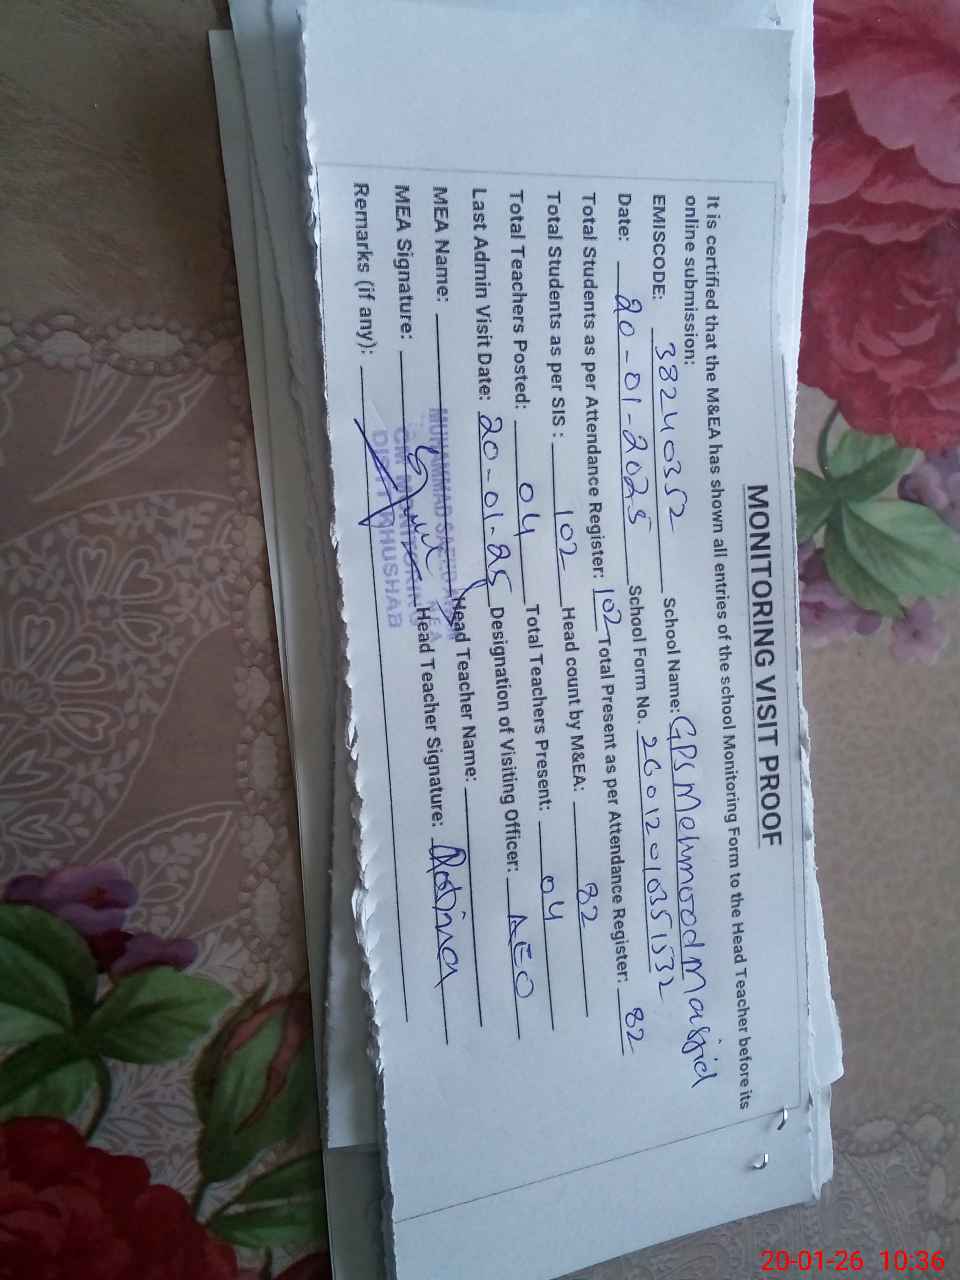 MONITORING VISIT PROOF
It is certified that the M&EA has shown all entries of the school Monitoring Form to the Head Teacher before its
online submission:
EMISCODE: 38240352 School Name: GPS Mehmood Masjid
Date: 20-01-2025 School Form No. 26012010351532
Total Students as per Attendance Register: 102 Total Present as per Attendance Register: 82
Total Students as per SIS : 102 Head count by M&EA: 82
Total Teachers Posted: 04 Total Teachers Present: 04
Last Admin Visit Date: 20-01-25 Designation of Visiting Officer: AEO
MEA Name: MUHAMMAD SAEED Head Teacher Name:
MEA Signature: Head Teacher Signature:
Remarks (if any): KHUSHAB
20-01-26 10:36